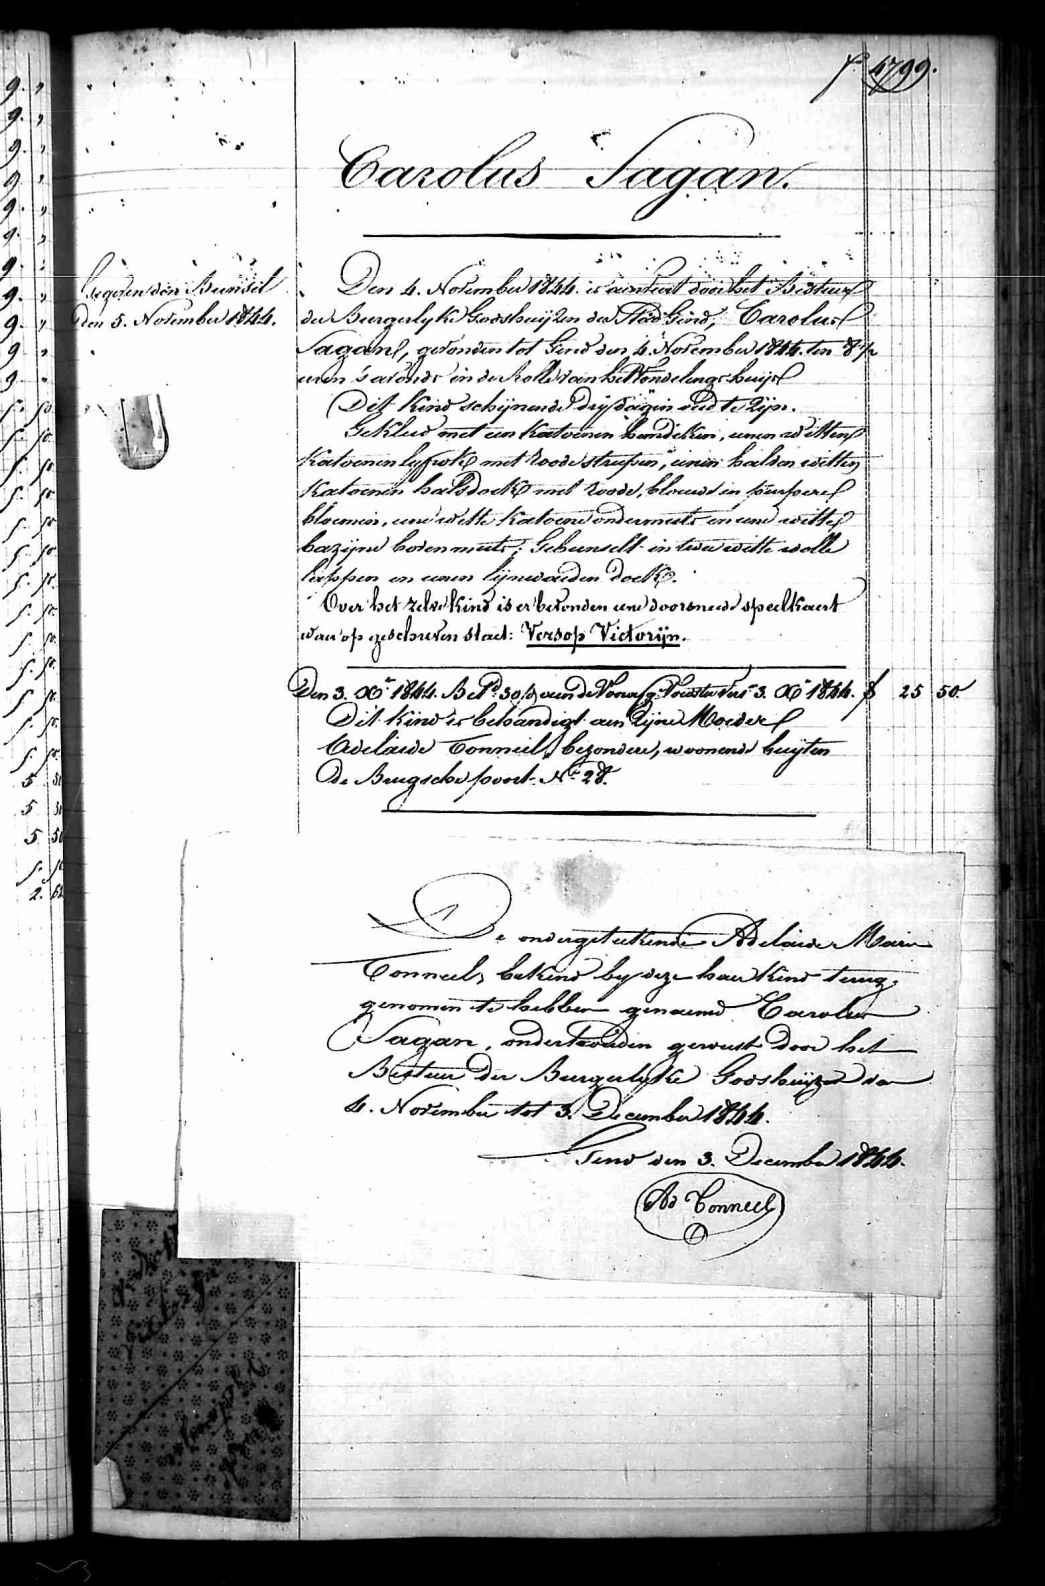 f° 4799.
Carolus Sagan.
gegeven den Bunsel
den 5. November 1844.
Den 4. November 1844. is aenveert door het Bestuer
der Burgerlyke Godshuijzen der Stad Gend, Carolus
Sagan, gevonden tot Gend den 4. November 1844. ten 8 1/2
uren 's avonds in de Rolle van het Vondelingshuijs
Dit kind schijnende drij dagen oud te zijn.
Gekleed met een katoenen hemdeken, eenen witten
katoenen lyfrok met roode streepen, eenen halven witten
katoenen halsdoek met roode, blauwe en purpere
bloemen, eene witte katoene ondermuts en eene witte
bazijne bovenmuts; Gebunselt in twee witte wolle
lappen en eenen lijnwaeden doek.
Over het zelve kind is er bevonden eene doorsneede speelkaert
waer op geschreven staet: Versop Victorijn.
Den 3. Xbr 1844. Bet. 30 van de 3. Xbr 1844. f 25 50
Dit kind is behandigt aen zijne Moeder
Adelaide Tonneel, bezondere, woonende buijten
de Brugsche poort. No 28.
De ondergeteekende Adelaide Marie
Tonneel, bekend by deze haer kind terug
genomen te hebben genaemd Carolus
Sagan, onderhouden geweest door het
Bestuer der Burgerlyke Godshuijzen van
4. November tot 3. December 1844.
Gend den 3. December 1844.
Ad Tonneel